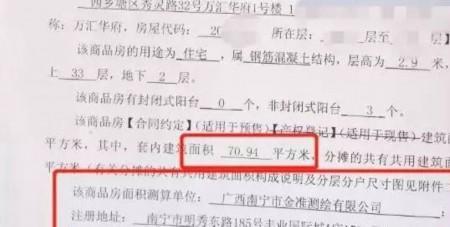 西乡塘区秀灵路32号万汇华府1号
称：万汇华府，房屋代码：20 所在层： 层至
该商品房的用途为 住宅 ，属 钢筋混凝土结构，层高为 2.9 米，
上 33 层，地下 2 层。
该商品房有封闭式阳台 0 个，非封闭式阳台 3 个。
该商品房【合同约定】（适用于预售）【产权登记】（适用于现售）建筑面
平方米，其中，套内建筑面积 70.94 平方米，分摊的共有共用建筑面
平方米（有关分摊的共有共用建筑面积构成说明及分层分户尺寸图见附件
该商品房面积测算单位： 广西南宁市金准测绘有限公司
注册地址： 南宁市明秀东路185号丰业国际城